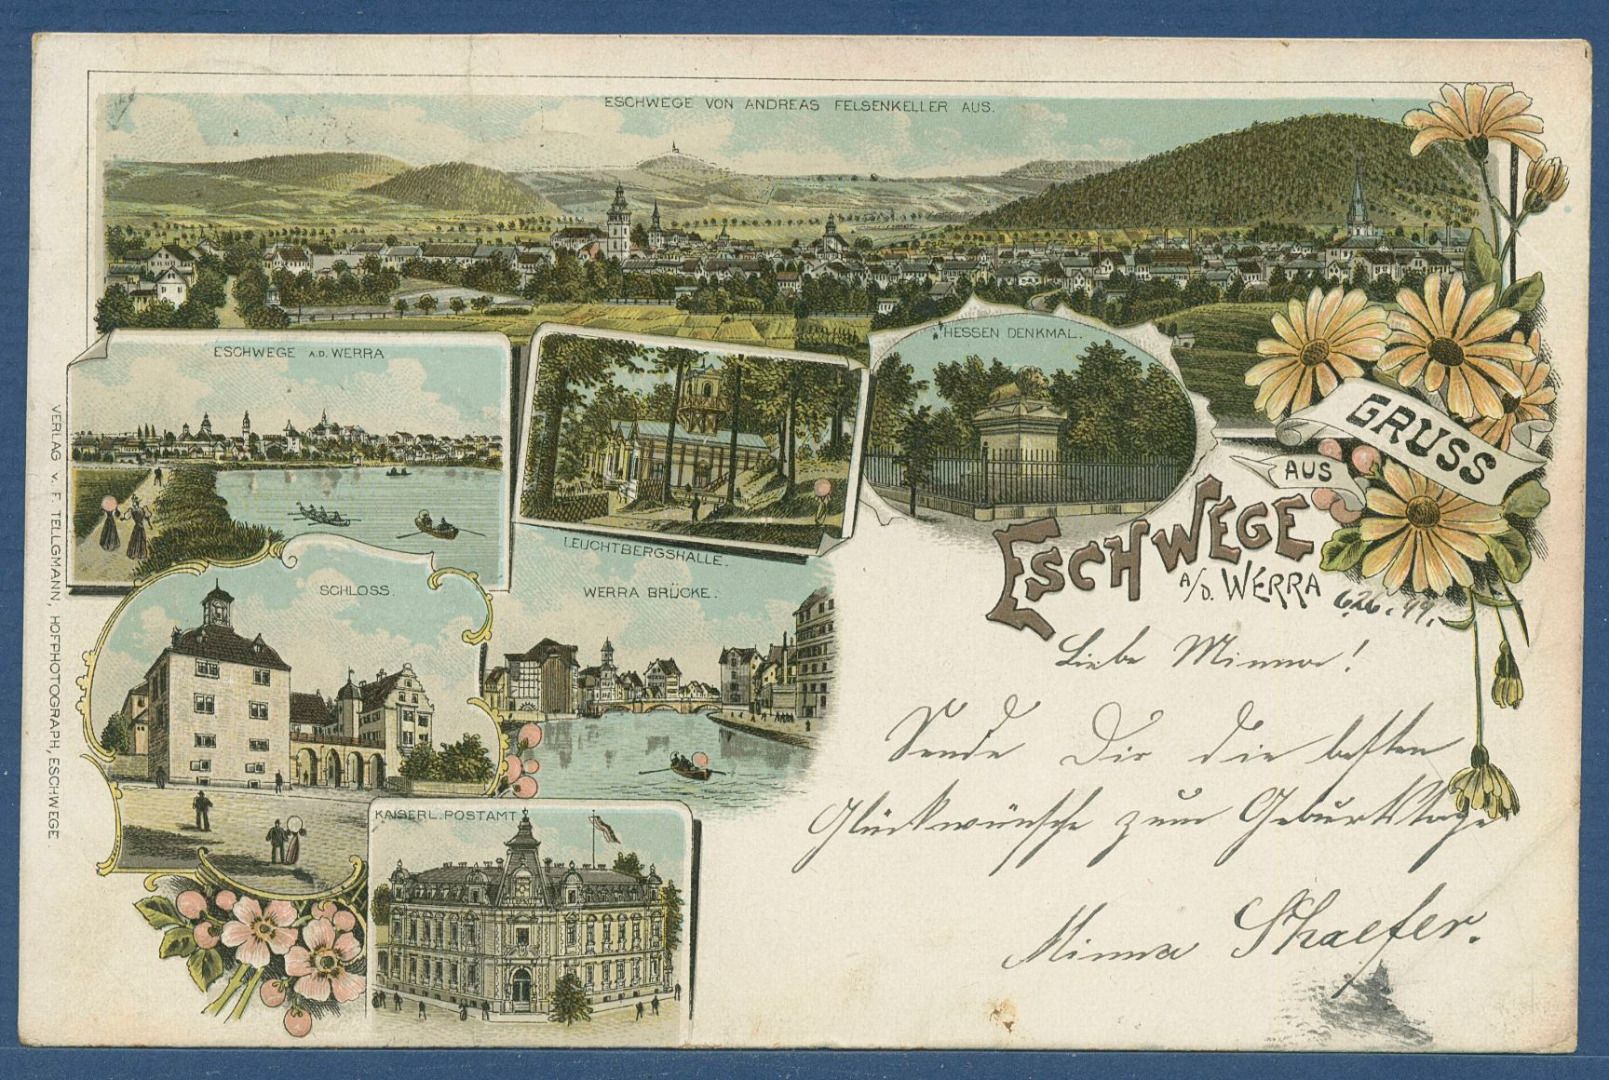 ESCHWEGE VON ANDREAS FELSENKELLER AUS.
ESCHWEGE A.D. WERRA
HESSEN DENKMAL.
GRUSS
AUS
ESCHWEGE
A/D. WERRA
LEUCHTBERGSHALLE.
SCHLOSS.
WERRA BRÜCKE.
KAISERL. POSTAMT
VERLAG v. F. TELLGMANN, HOFPHOTOGRAPH, ESCHWEGE.
Liebe Minna!
Sende Dir die besten
Glückwünsche zum Geburtstage
Minna Schaefer.